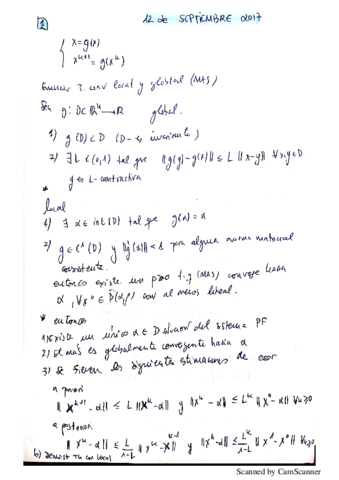 1 12 de SEPTIEMBRE 2017
{ x = g(x)
x^{k+1} = g(x^k)
Enunciar T. conv local y global (MAS)
Sea g: D⊂ℝ^n → ℝ global.
1) g(D)⊂D (D es invariante)
2) ∃ L ∈ (0,1) tal que ||g(y) - g(x)|| ≤ L ||x-y|| ∀x,y∈D
g es L-contractiva
*
local
1) ∃ α ∈ int(D) tal que g(α) = α
2) g ∈ C¹(D) y ||g'(α)|| < 1 para alguna norma matricial
consistente.
entonces existe un ρ>0 t.q (MAS) converge hacia
α, ∀x⁰ ∈ D̄(α,ρ) con al menos lineal.
* entonces
1) existe un único α ∈ D solución del sistema PF
2) El MAS es globalmente convergente hacia α
3) Se tienen las siguientes estimaciones de error
a priori
||x^{k+1} - α|| ≤ L ||x^k - α|| y ||x^k - α|| ≤ L^k ||x⁰ - α|| ∀k≥0
a posteriori
||x^k - α|| ≤ L/(1-L) ||x^k - x^{k-1}|| y ||x^k - α|| ≤ L^k/(1-L) ||x¹ - x⁰|| ∀k≥0
b) Demost Tu con local
Scanned by CamScanner